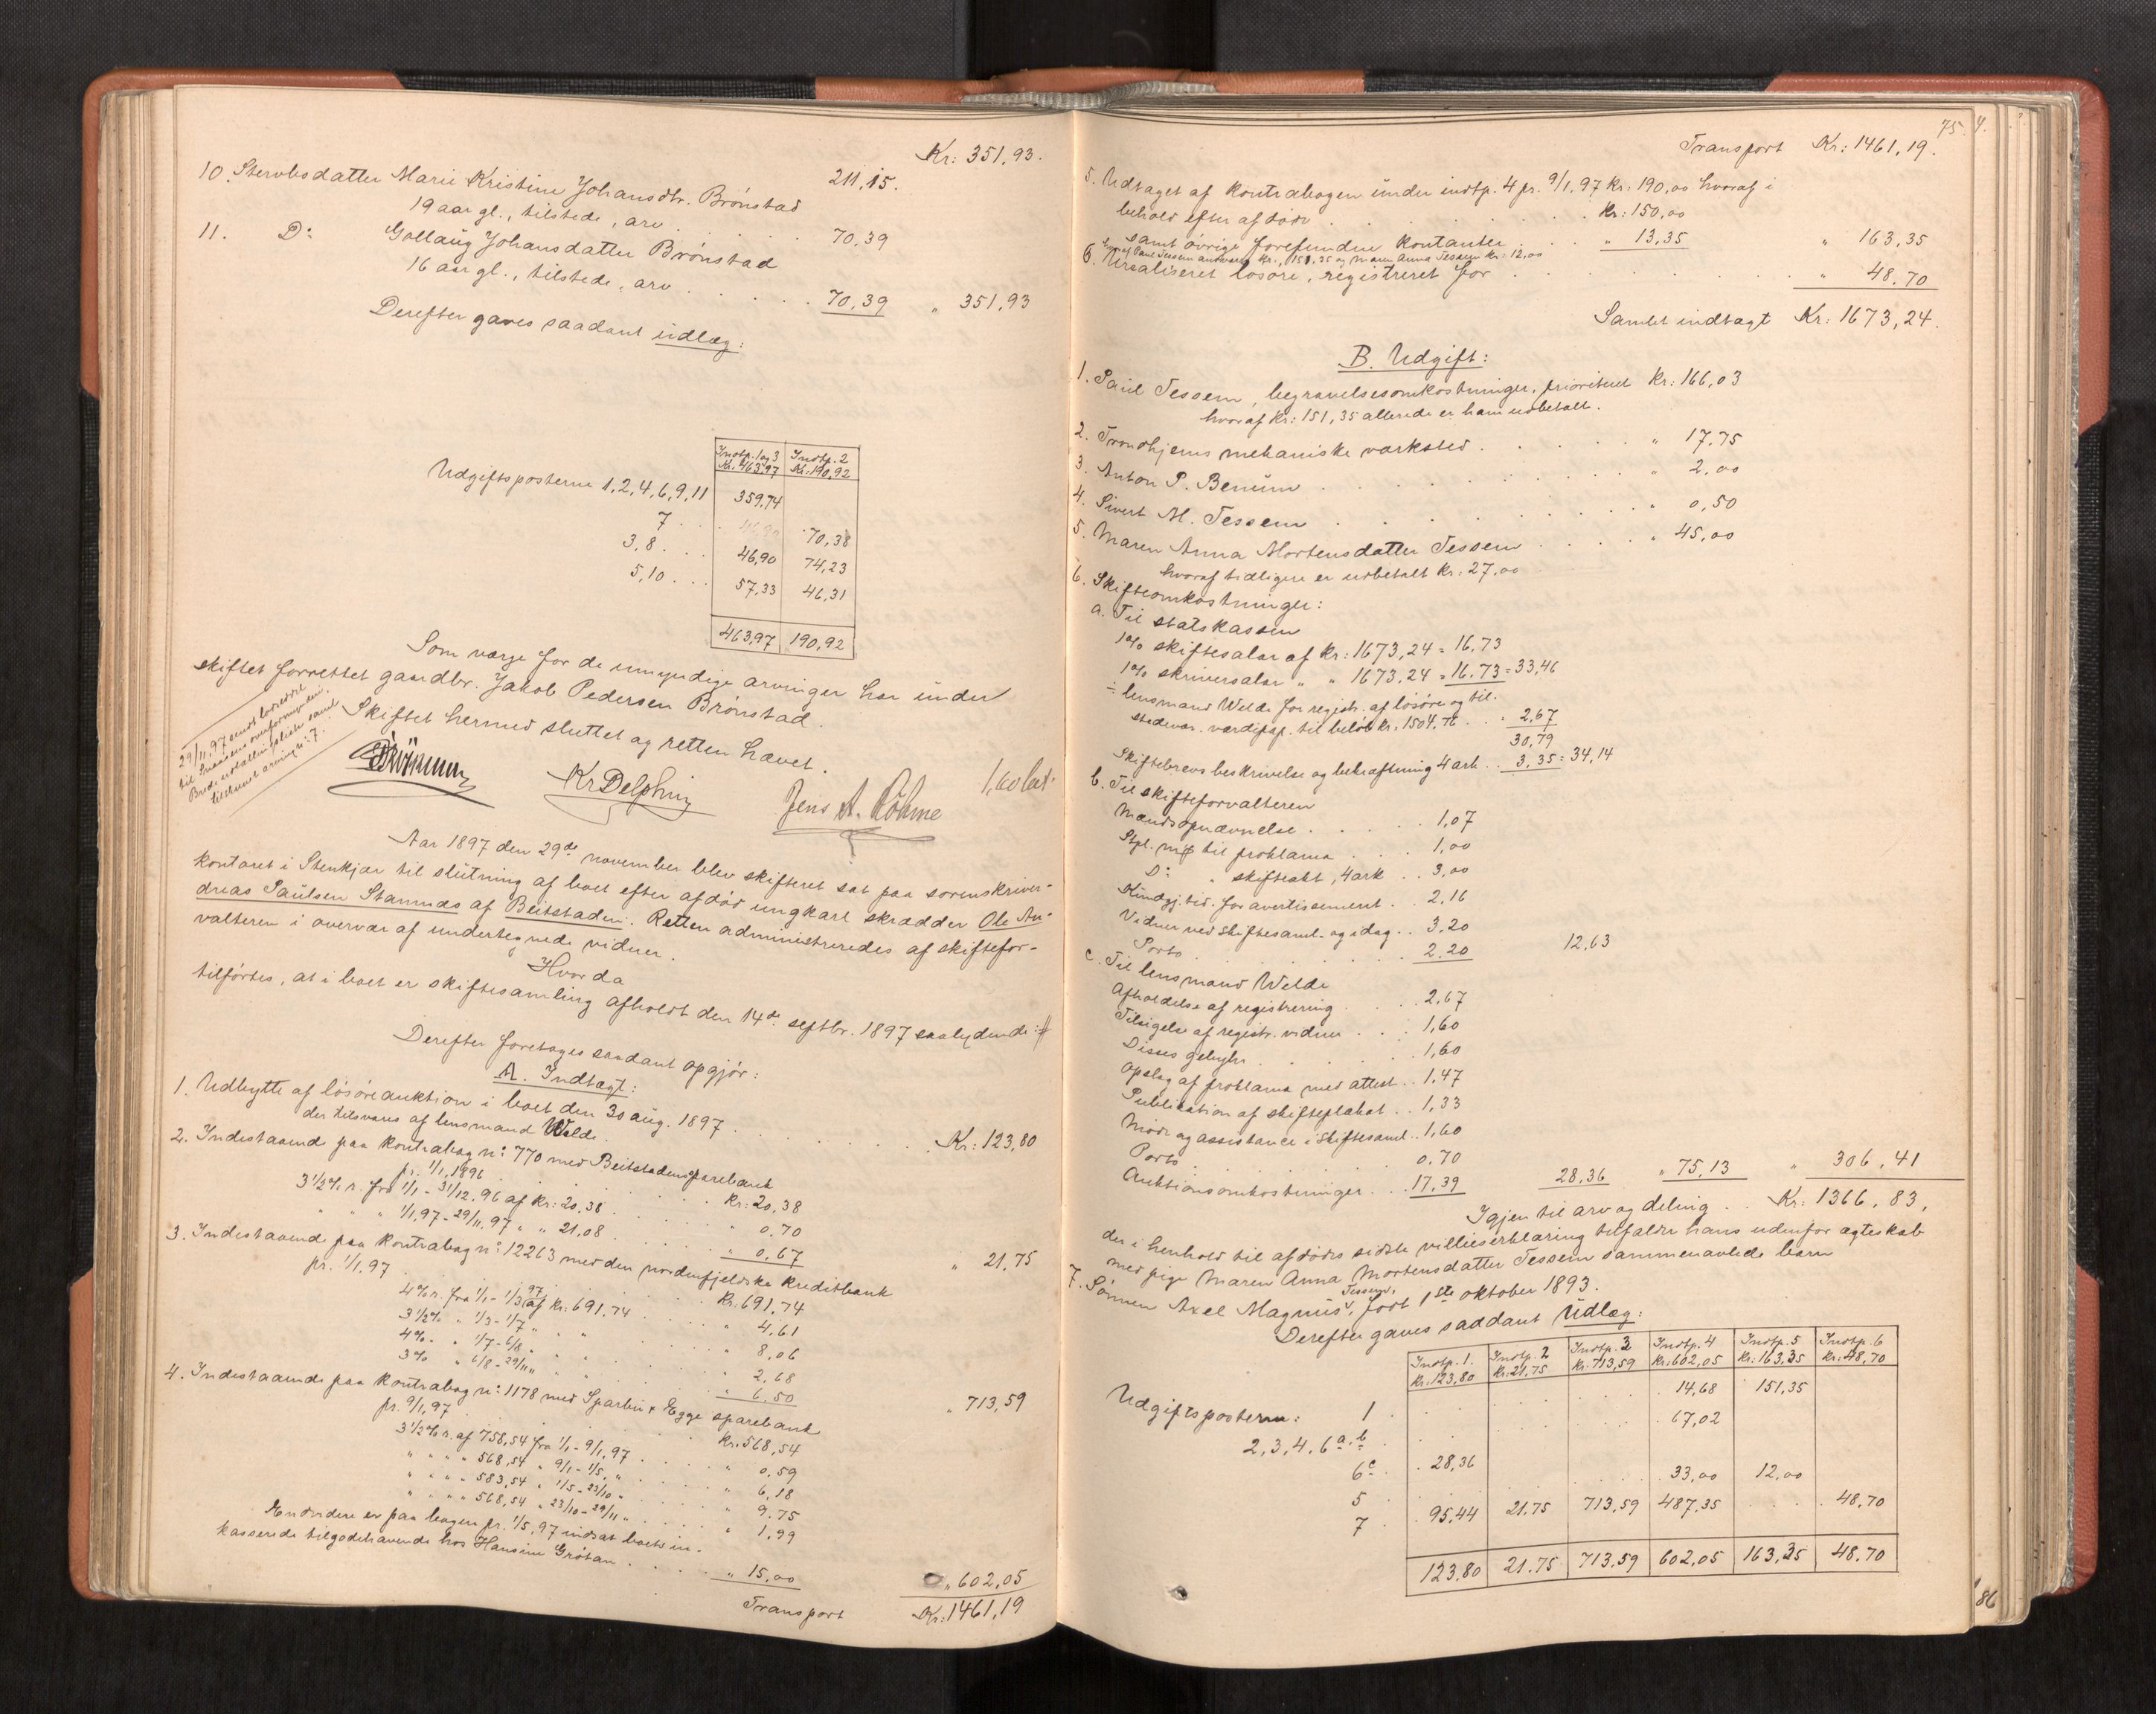 Kr: 351,93.
10. Stervbsdatter Marie Kristine Johansdtr. Brönstad 211,15.
19 aar gl., tilstede, arv . . . . . 70,39
11. Do: Gollaug Johansdatter Brönstad
16 aar gl., tilstede, arv . . . . . 70,39 " 351,93
Derefter gaves saadant udlæg:
Indtp. 1 og 3 Indtp. 2
Kr: 463,97 Kr: 190,92
Udgiftsposterne 1, 2, 4, 6, 9, 11 359,74
7 . . . 70,38
3, 8 . . . 46,90 74,23
5, 10 . . . 57,33 46,31
463,97 190,92
Som værge for de umyndige arvinger har under
skiftet forrettet gaardbr. Jakob Pedersen Brönstad.
Skiftet hermed sluttet og retten hævet.
29/11. 97 sendt
til Innsens overformynderi.
samt
arving no: 7.
Kr Delphin
Jens A. Röhme
1,60 bet.
Aar 1897 den 29de november blev skifteret sat paa sorenskriver-
kontoret i Stenkjær til slutning af boet efter afdöd ungkarl skrædder Ole An-
dreas Paulsen Stamnæs af Beitstaden. Retten administreredes af skiftefor-
valteren i overvær af undertegnede vidner.
Hvorda
tilförtes, at i boet er skiftesamling afholdt den 14de septbr. 1897 saalydende: #
Derefter foretages saadant opgjör:
A. Indtægt:
1. Udbytte af lösöreauktion i boet den 30 aug. 1897
der tilsvares af lensmand Welde . . . . . Kr: 123,80
2. Indestaaende paa kontrabog no: 770 med Beitstadens sparebank
pr. 1/1, 1896 . . . . . Kr: 20,38
3 1/2 % r. fra 1/1 - 31/12. 96 af Kr: 20,38 . . . " 0,70
" " " 1/1, 97 - 29/11. 97 " " 21,08 . . . . " 0,67 " 21,75
3. Indestaaende paa kontrabog no: 12263 med den nordenfjeldske kreditbank
pr. 1/1, 97 . . . . . Kr: 691,74
4 % r. fra 1/1 - 1/3 97 af Kr: 691,74 . . . " 4,61
3 1/2 % " 1/3 - 1/7 " " " . . . " 8,06
4 % " 1/7 - 6/8 " . . . " 2,68
3 % " 6/8 - 29/11 " . . . " 6,50 " 713,59
4. Indestaaende paa kontrabog no: 1178 med Sparbu & Egge sparebank
pr. 9/1, 97 . . . . . Kr: 568,54
3 1/2 % r. af 758,54 fra 1/1 - 9/1, 97 . . . " 0,59
" " " " 568,54 " 9/1 - 1/5, " . . . " 6,18
" " " " 583,54 " 1/5 - 23/10 " . . . " 9,75
" " " " 568,54 " 23/10 - 29/11 " . . . " 1,99
Endvidere er paa bogen pr. 1/5, 97 indsat boets in-
kasserede tilgodehavende hos Hansine Grötan . . . . " 15,00 " 602,05
Transport Kr: 1461,19
75.
Transport Kr: 1461,19.
5. Udtaget af kontrabogen under indtp. 4 pr. 9/1, 97 Kr: 190,00 hvoraf i
behold efter afdöde . . . . . Kr: 150,00
samt övrige forefundne kontanter . . . " 13,35 " 163,35
hvoraf Paul Tessem Kr: 151,35 og Maren Anna Tessem Kr: 12,00
6. Urealiseret lösöre, registreret for . . . . . " 48,70
Samlet indtægt Kr: 1673,24.
B. Udgift:
1. Paul Tessem, begravelsesomkostninger, prioriteret Kr: 166,03
hvoraf Kr: 151,35 allerede er ham udbetalt.
2. Trondhjems mekaniske værksted . . . . . " 17,75
3. Anton P. Benum . . . . . " 2,00
4. Sivert M. Tessem . . . . . " 0,50
5. Maren Anna Mortensdatter Tessem . . . . . " 45,00
hvoraf tidligere er udbetalt Kr: 27,00
6. Skifteomkostninger:
a. Til statskassen
1 % skiftesalær af Kr: 1673,24 = 16,73
1 % skriversalær " " 1673,24 = 16,73 = 33,46
÷ lensmand Welde for registr. af lösöre og til-
stedevær. værdipap. til belöb kr. 1504,76 . . . 2,67
30,79
Skiftebrevs beskrivelse og bekræftning 4 ark . . 3,35 = 34,14
b. Til skifteforvalteren
Mændsopnævnelse . . . . 1,07
Stpl. m/p til proklama . . . 1,00
Do: " skifteakt, 4 ark . . 3,00
Kundgj. tid. for avertissement . . 2,16
Vidner ved skiftesaml. og idag . . 3,20
Porto . . . . . 2,20 12,63
c. Til lensmand Welde
Afholdelse af registrering . . . 2,67
Tilsigelse af registr. vidner . . . 1,60
Disses gebyhr . . . . 1,60
Opslag af proklama med attest . . 1,47
Publikation af skifteplakat . . 1,33
Möde og assistance i skiftesaml. . . 1,60
Porto . . . . . 0,70
Auktionsomkostninger . . . 17,39 28,36 " 75,13 " 306,41
Igjen til arv og deling . . Kr: 1366,83,
der i henhold til afdödes sidste villieserklæring tilfalder hans udenfor ægteskab
med pige Maren Anna Mortensdatter Tessem sammenavlede barn
7. Sönnen Axel Magnus Tessem, födt 1ste oktober 1893.
Derefter gaves saadant Udlæg:
Indtp. 1. Indtp. 2 Indtp. 3 Indtp. 4 Indtp. 5 Indtp. 6
Kr: 123,80 Kr: 21,75 Kr: 713,59 Kr: 602,05 Kr: 163,35 Kr: 48,70
Udgiftsposterne: 1 . . . . . 14,68 151,35
2, 3, 4, 6 a. b . . . . . 67,02
6 c . 28,36
5 . . . . . 33,00 12,00
7 . 95,44 21,75 713,59 487,35 . . . 48,70
123,80 21,75 713,59 602,05 163,35 48,70
86